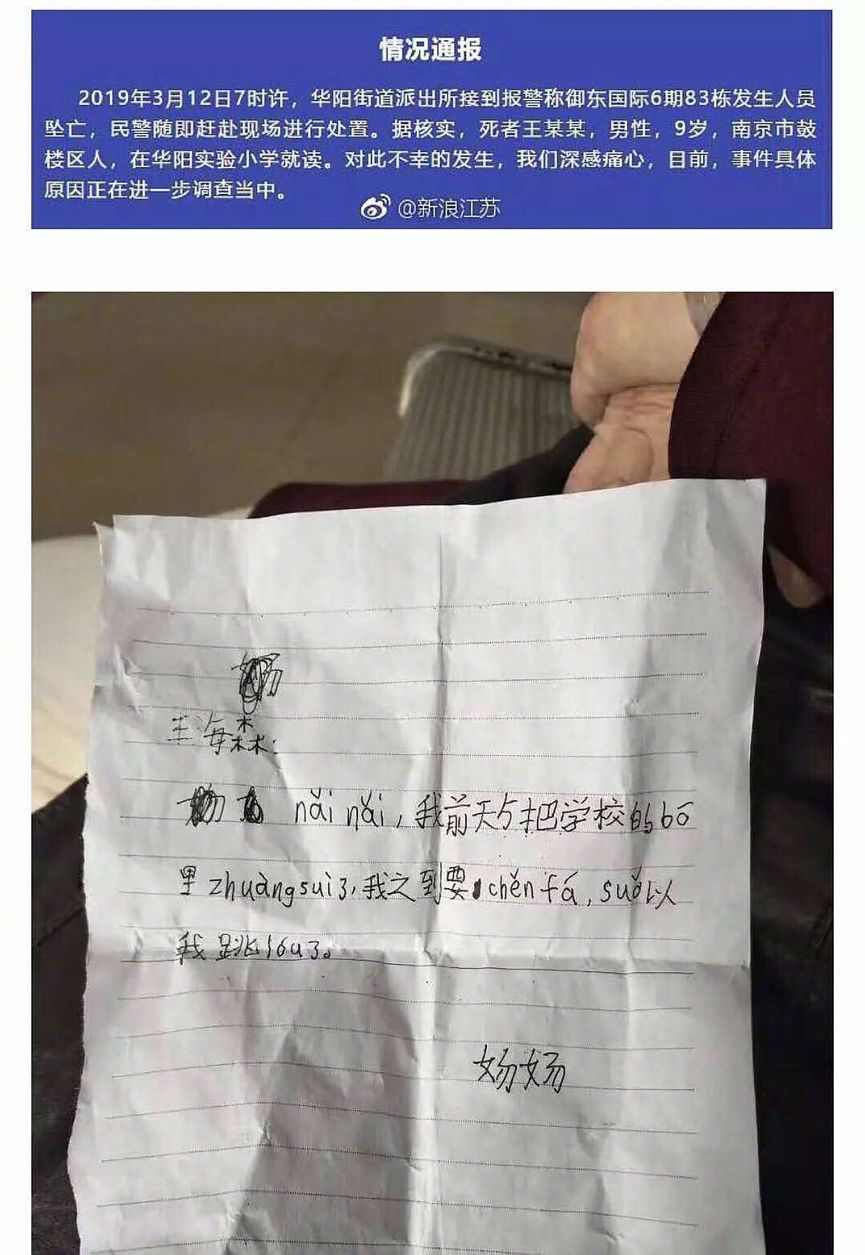 情况通报
2019年3月12日7时许，华阳街道派出所接到报警称御东国际6期83栋发生人员
坠亡，民警随即赶赴现场进行处置。据核实，死者王某某，男性，9岁，南京市鼓
楼区人，在华阳实验小学就读。对此不幸的发生，我们深感痛心，目前，事件具体
原因正在进一步调查当中。
@新浪江苏
王海森：
nǎi nǎi，我前天把学校的bō
里zhuàng suì了，我之到要chěn fá，suǒ以
我跳lóu了。